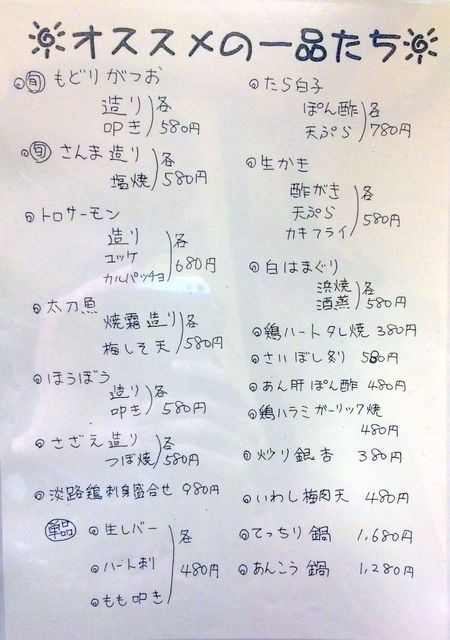 オススメの一品たち
◎旬 もどりがつお
造り 各
叩き 580円
◎旬 さんま 造り 各
塩焼 580円
◎トロサーモン
造り 各
ユッケ 680円
カルパッチョ
◎太刀魚
焼霜造り 各
梅しそ天 580円
◎ほうぼう
造り 各
叩き 580円
◎さざえ 造り 各
つぼ焼 580円
◎淡路鶏刺身盛合せ 980円
単品 ◎生レバー 各
◎ハート刺 480円
◎もも叩き
◎たら白子
ぽん酢 各
天ぷら 780円
◎生かき
酢がき 各
天ぷら 580円
カキフライ
◎白はまぐり
浜焼 各
酒蒸 580円
◎鶏ハートタレ焼 380円
◎さいぼし炙り 580円
◎あん肝ぽん酢 480円
◎鶏ハラミガーリック焼
480円
◎炒り銀杏 380円
◎いわし梅肉天 480円
◎てっちり鍋 1,680円
◎あんこう鍋 1,280円